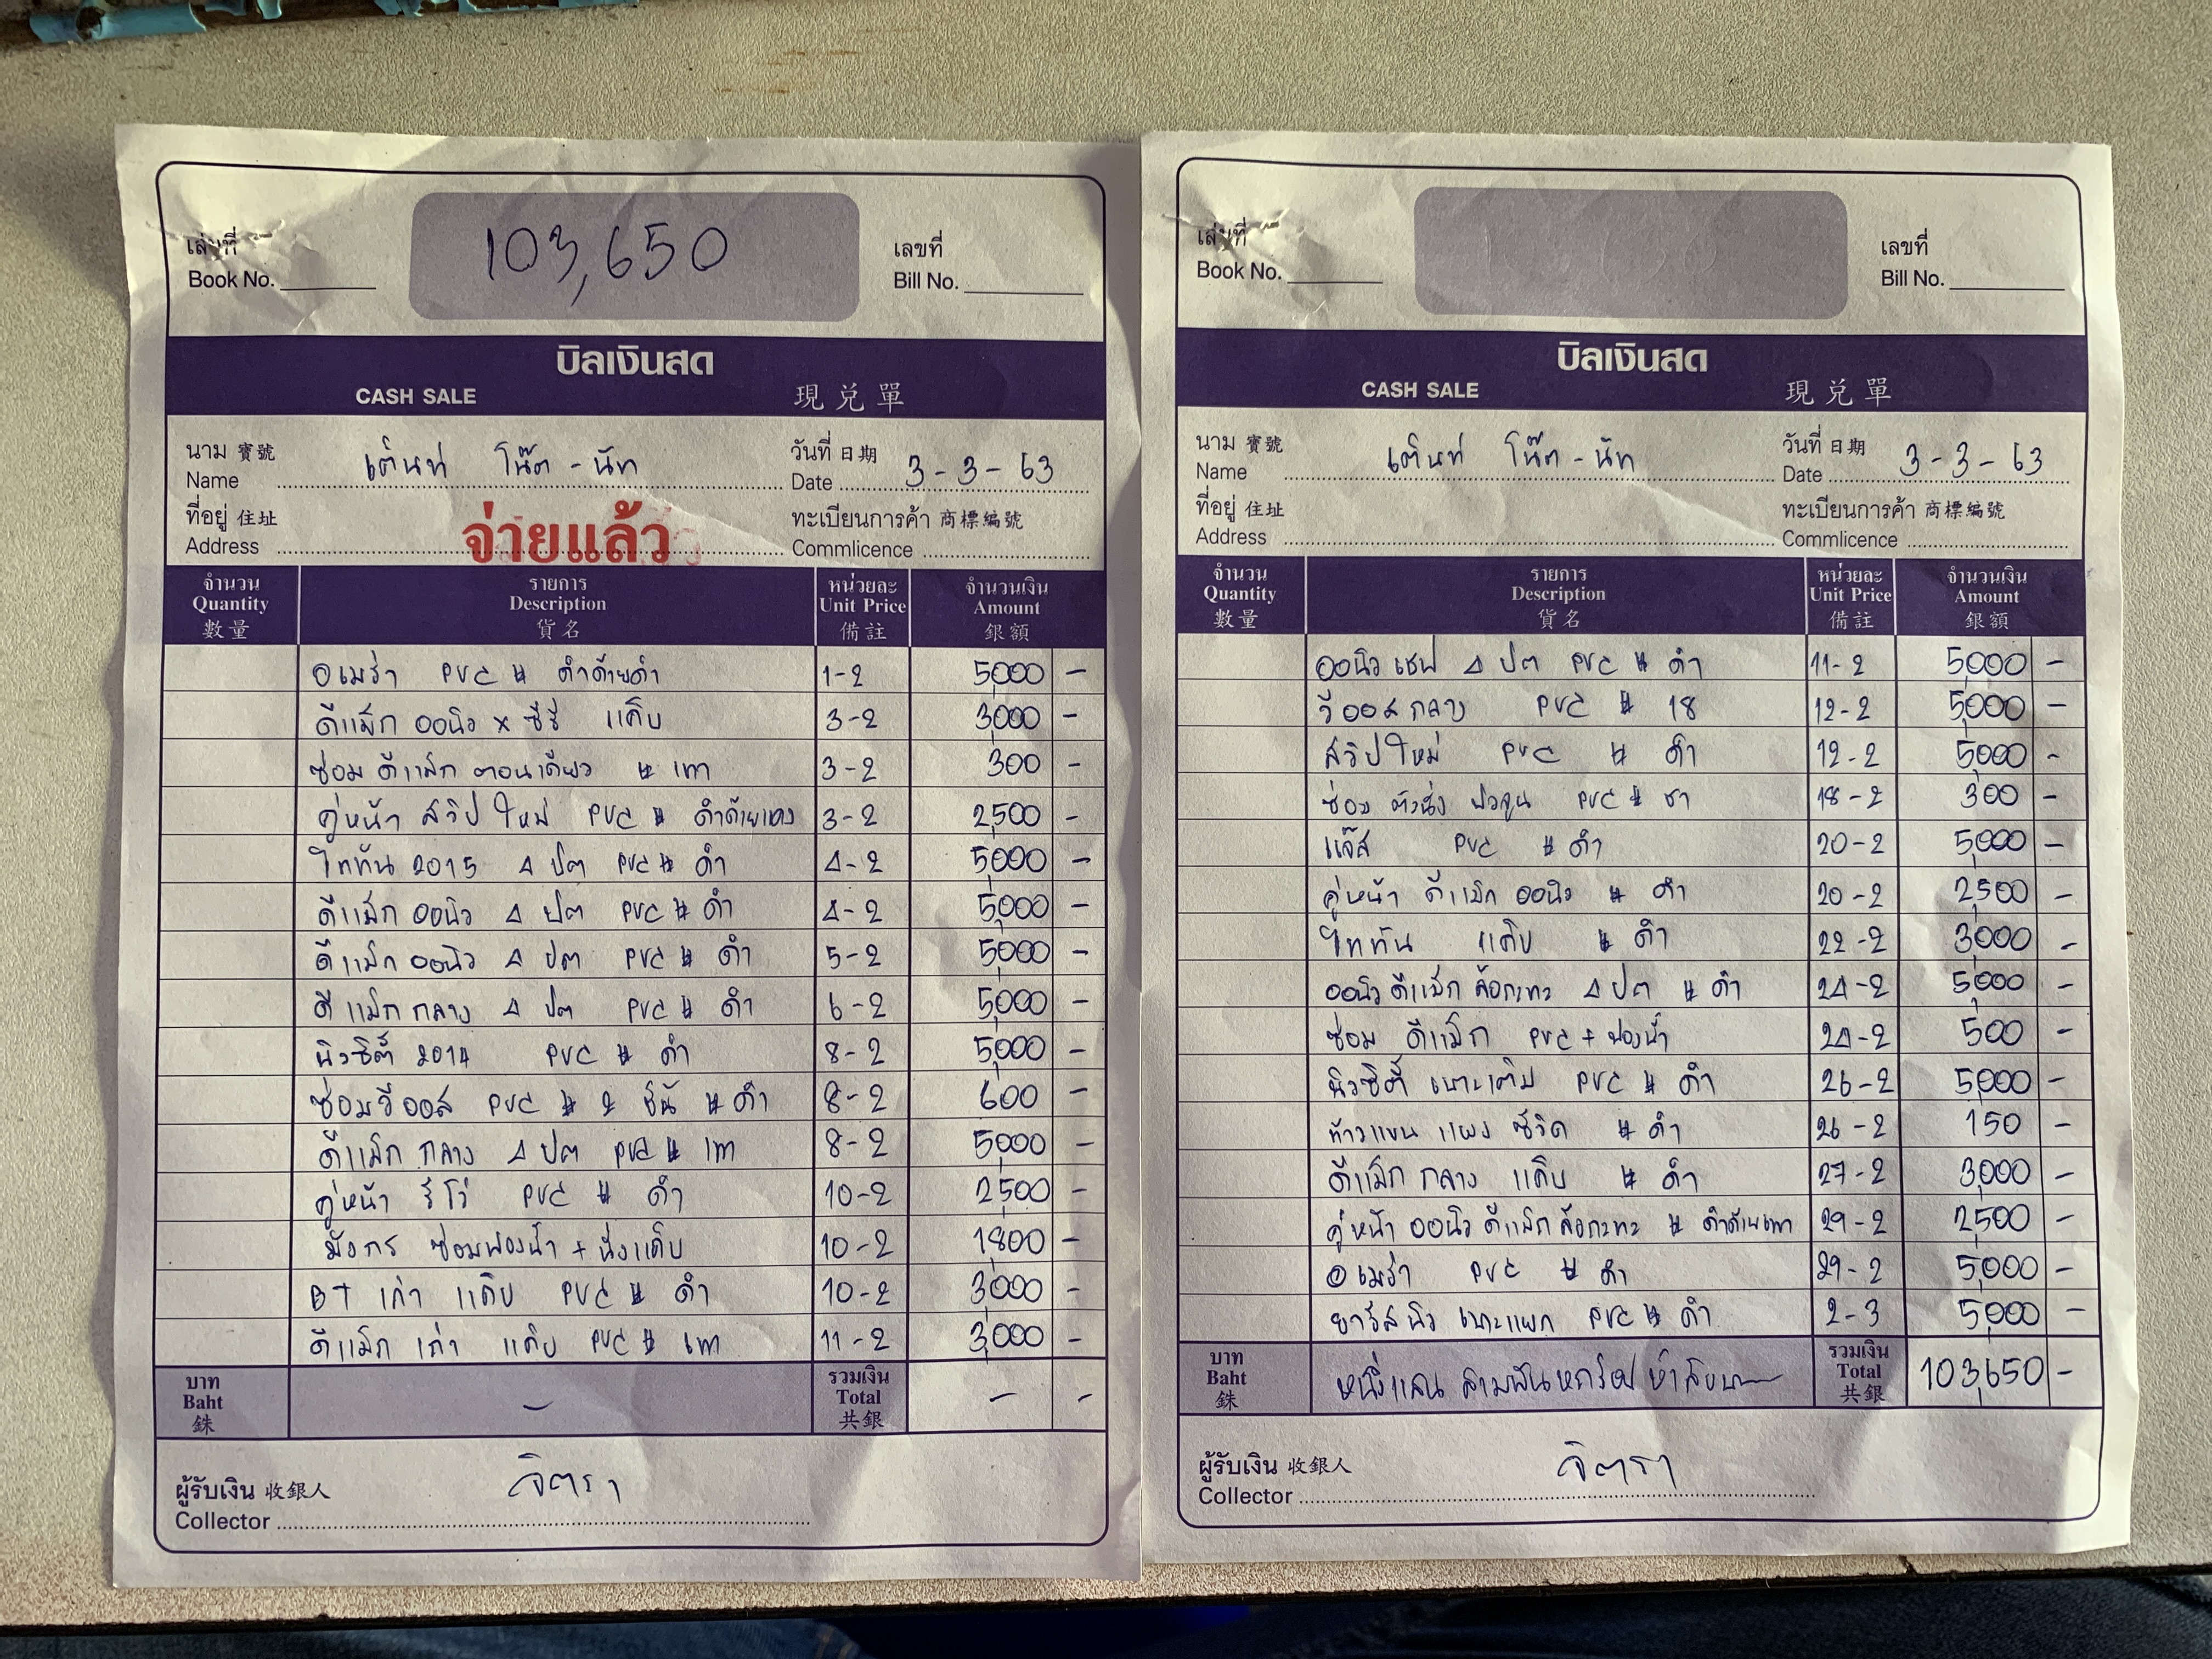 เล่มที่
Book No.
103,650
เลขที่
Bill No.
บิลเงินสด
CASH SALE 現兌單
นาม 寶號
Name
เต็นท์ โน๊ต - นัท
วันที่ 日期
Date 3-3-63
ที่อยู่ 住址
Address
จ่ายแล้ว
ทะเบียนการค้า 商標編號
Commlicence
จำนวน รายการ หน่วยละ จำนวนเงิน
Quantity Description Unit Price Amount
數量 貨名 備註 銀額
อเมร่า PVC # ดำด้ายดำ 1-2 5,000 -
ดีแม็ก ออนิว x ซีรี่ แค็บ 3-2 3,000 -
ซ่อม ดีแม็ก ตอนเดียว # เทา 3-2 300 -
คู่หน้า สวิปใหม่ PVC # ดำด้ายแดง 3-2 2,500 -
ไททัน 2015 4 ปต PVC # ดำ 4-2 5,000 -
ดีแม็ก ออนิว 4 ปต PVC # ดำ 4-2 5,000 -
ดีแม็ก ออนิว 4 ปต PVC # ดำ 5-2 5,000 -
ดีแม็ก กลาง 4 ปต PVC # ดำ 6-2 5,000 -
นิวซิตี้ 2014 PVC # ดำ 8-2 5,000 -
ซ่อมวีออส PVC # 2 ชิ้น # ดำ 8-2 600 -
ดีแม็ก กลาง 4 ปต PVC # เทา 8-2 5,000 -
คู่หน้า รีโว่ PVC # ดำ 10-2 2,500 -
มังกร ซ่อมฟองน้ำ + นั่งแค็บ 10-2 1,800 -
BT เก่า แค็บ PVC # ดำ 10-2 3,000 -
ดีแม็ก เก่า แค็บ PVC # เทา 11-2 3,000 -
บาท รวมเงิน
Baht - Total - -
銖 共銀
ผู้รับเงิน 收銀人
Collector
จิตรา
เล่มที่
Book No.
เลขที่
Bill No.
บิลเงินสด
CASH SALE 現兌單
นาม 寶號
Name
เต็นท์ โน๊ต - นัท
วันที่ 日期
Date 3-3-63
ที่อยู่ 住址
Address
ทะเบียนการค้า 商標編號
Commlicence
จำนวน รายการ หน่วยละ จำนวนเงิน
Quantity Description Unit Price Amount
數量 貨名 備註 銀額
ออนิว เชฟ 4 ปต PVC # ดำ 11-2 5,000 -
วีออส กลาง PVC # 18 12-2 5,000 -
สวิปใหม่ PVC # ดำ 12-2 5,000 -
ซ่อม PVC # ชา 18-2 300 -
แจ๊ส PVC # ดำ 20-2 5,000 -
คู่หน้า ดีแม็ก ออนิว # ดำ 20-2 2,500 -
ไททัน แค็บ # ดำ 22-2 3,000 -
ออนิว ดีแม็ก ล้อกะทะ 4 ปต # ดำ 24-2 5,000 -
ซ่อม ดีแม็ก PVC + ฟองน้ำ 24-2 500 -
นิวซิตี้ เบาะเต็ม PVC # ดำ 26-2 5,000 -
ท้าวแขน แผง ซีวิค # ดำ 26-2 150 -
ดีแม็ก กลาง แค็บ # ดำ 27-2 3,000 -
คู่หน้า ออนิว ดีแม็ก ล้อกะทะ # ดำด้ายเทา 29-2 2,500 -
อเมร่า PVC # ดำ 29-2 5,000 -
ยาริส นิว เบาะแยก PVC # ดำ 2-3 5,000 -
บาท รวมเงิน
Baht หนึ่งแสน สามพันหกร้อยห้าสิบบาท Total 103,650 -
銖 共銀
ผู้รับเงิน 收銀人
Collector
จิตรา